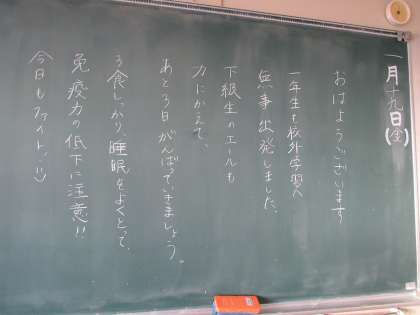 一月十九日(金)
おはようございます
一年生も校外学習へ
無事出発しました。
下級生のエールも
力にかえて、
あと3日がんばっていきましょう。
3食しっかり、睡眠をよくとって、
免疫力の低下に注意!!
今日もファイト!:)